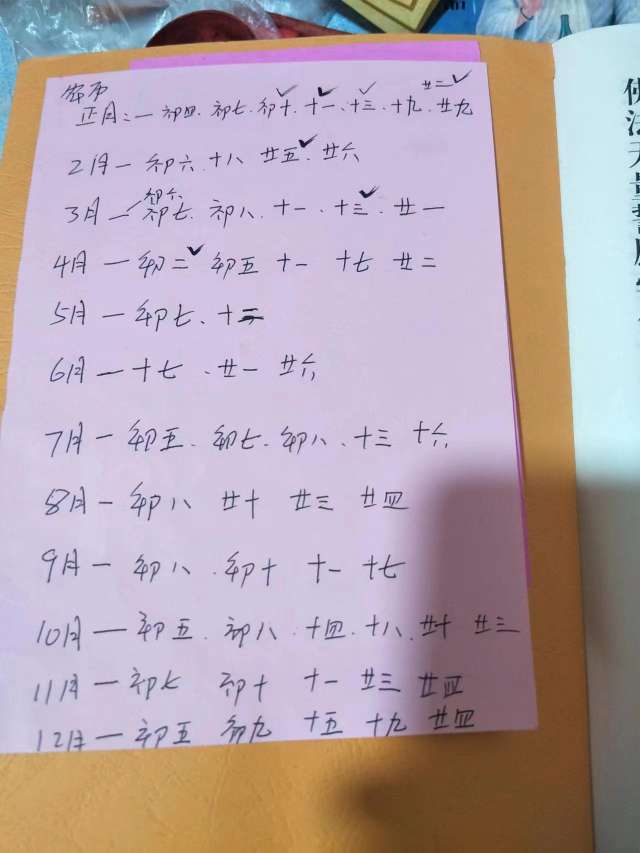 廿二✓
正月:一初四.初七.初十.✓十一.✓十三.✓十九.廿九
2月一初六.十八 廿五.✓廿六
初六.
3月一初七.初八.十一.十三.✓廿一
4月一初二✓初五 十一 十七 廿二
5月一初七、十二
6月一十七.廿一 廿六
7月一初五.初七.初八.十三 十六
8月一初八 廿十 廿三 廿四
9月一初八.初十 十一 十七
10月一初五.初八.十四.十八.廿十 廿三
11月一初七 初十 十一 廿三 廿四
12月一初五 初九 十五 十九 廿四
佛法无量